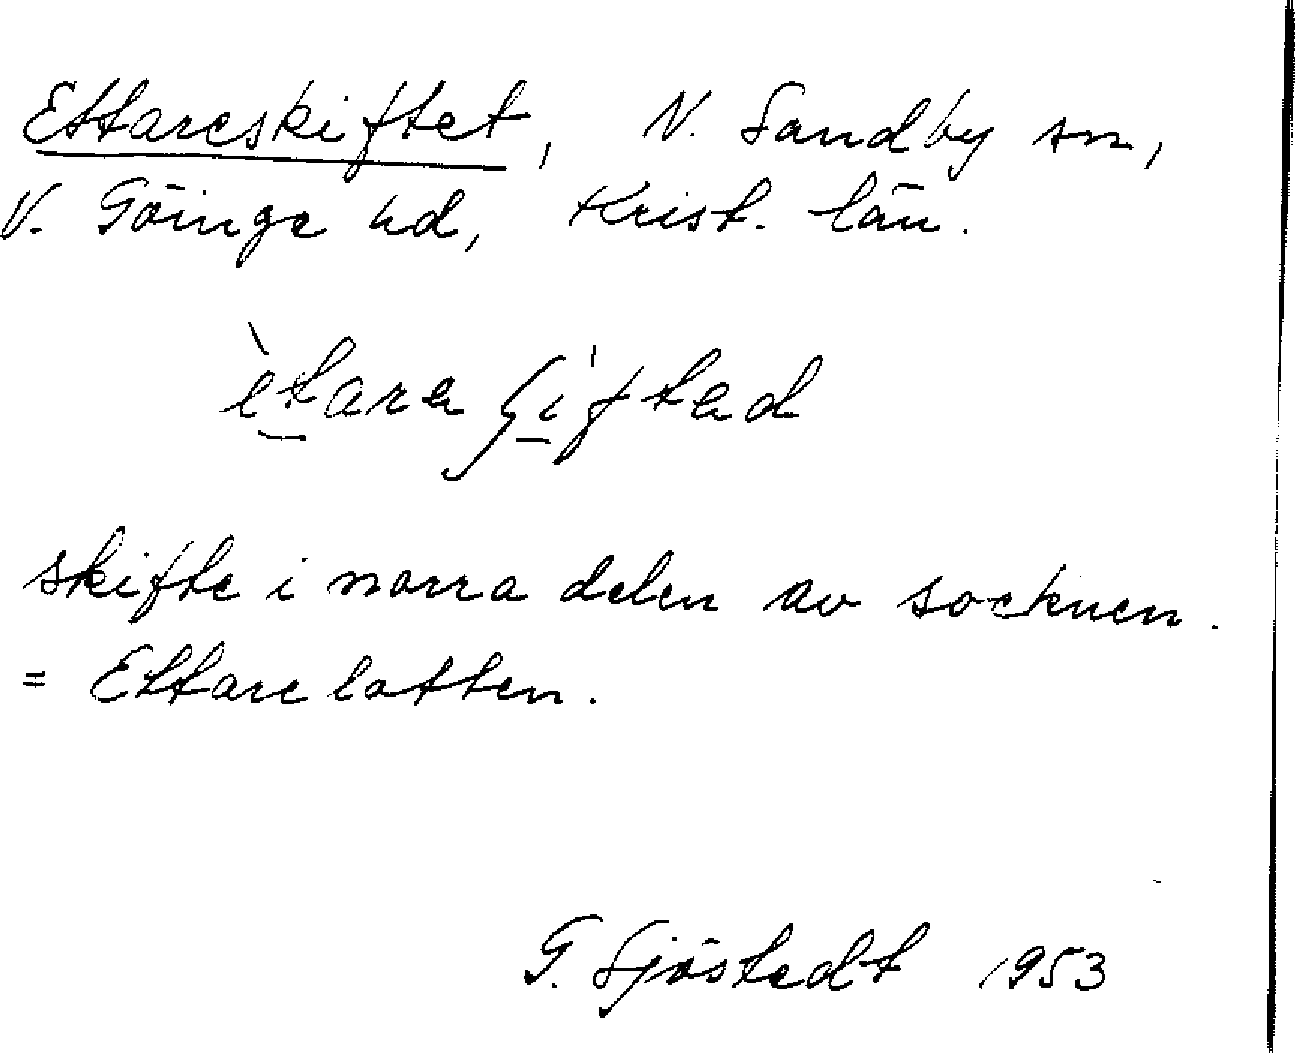 Ettareskiftet, N. Sandby sn,
V. Göinge hd, Krist. län.
skifte i norra delen av socknen.
= Ettarelotten.
G. Sjöstedt 1953